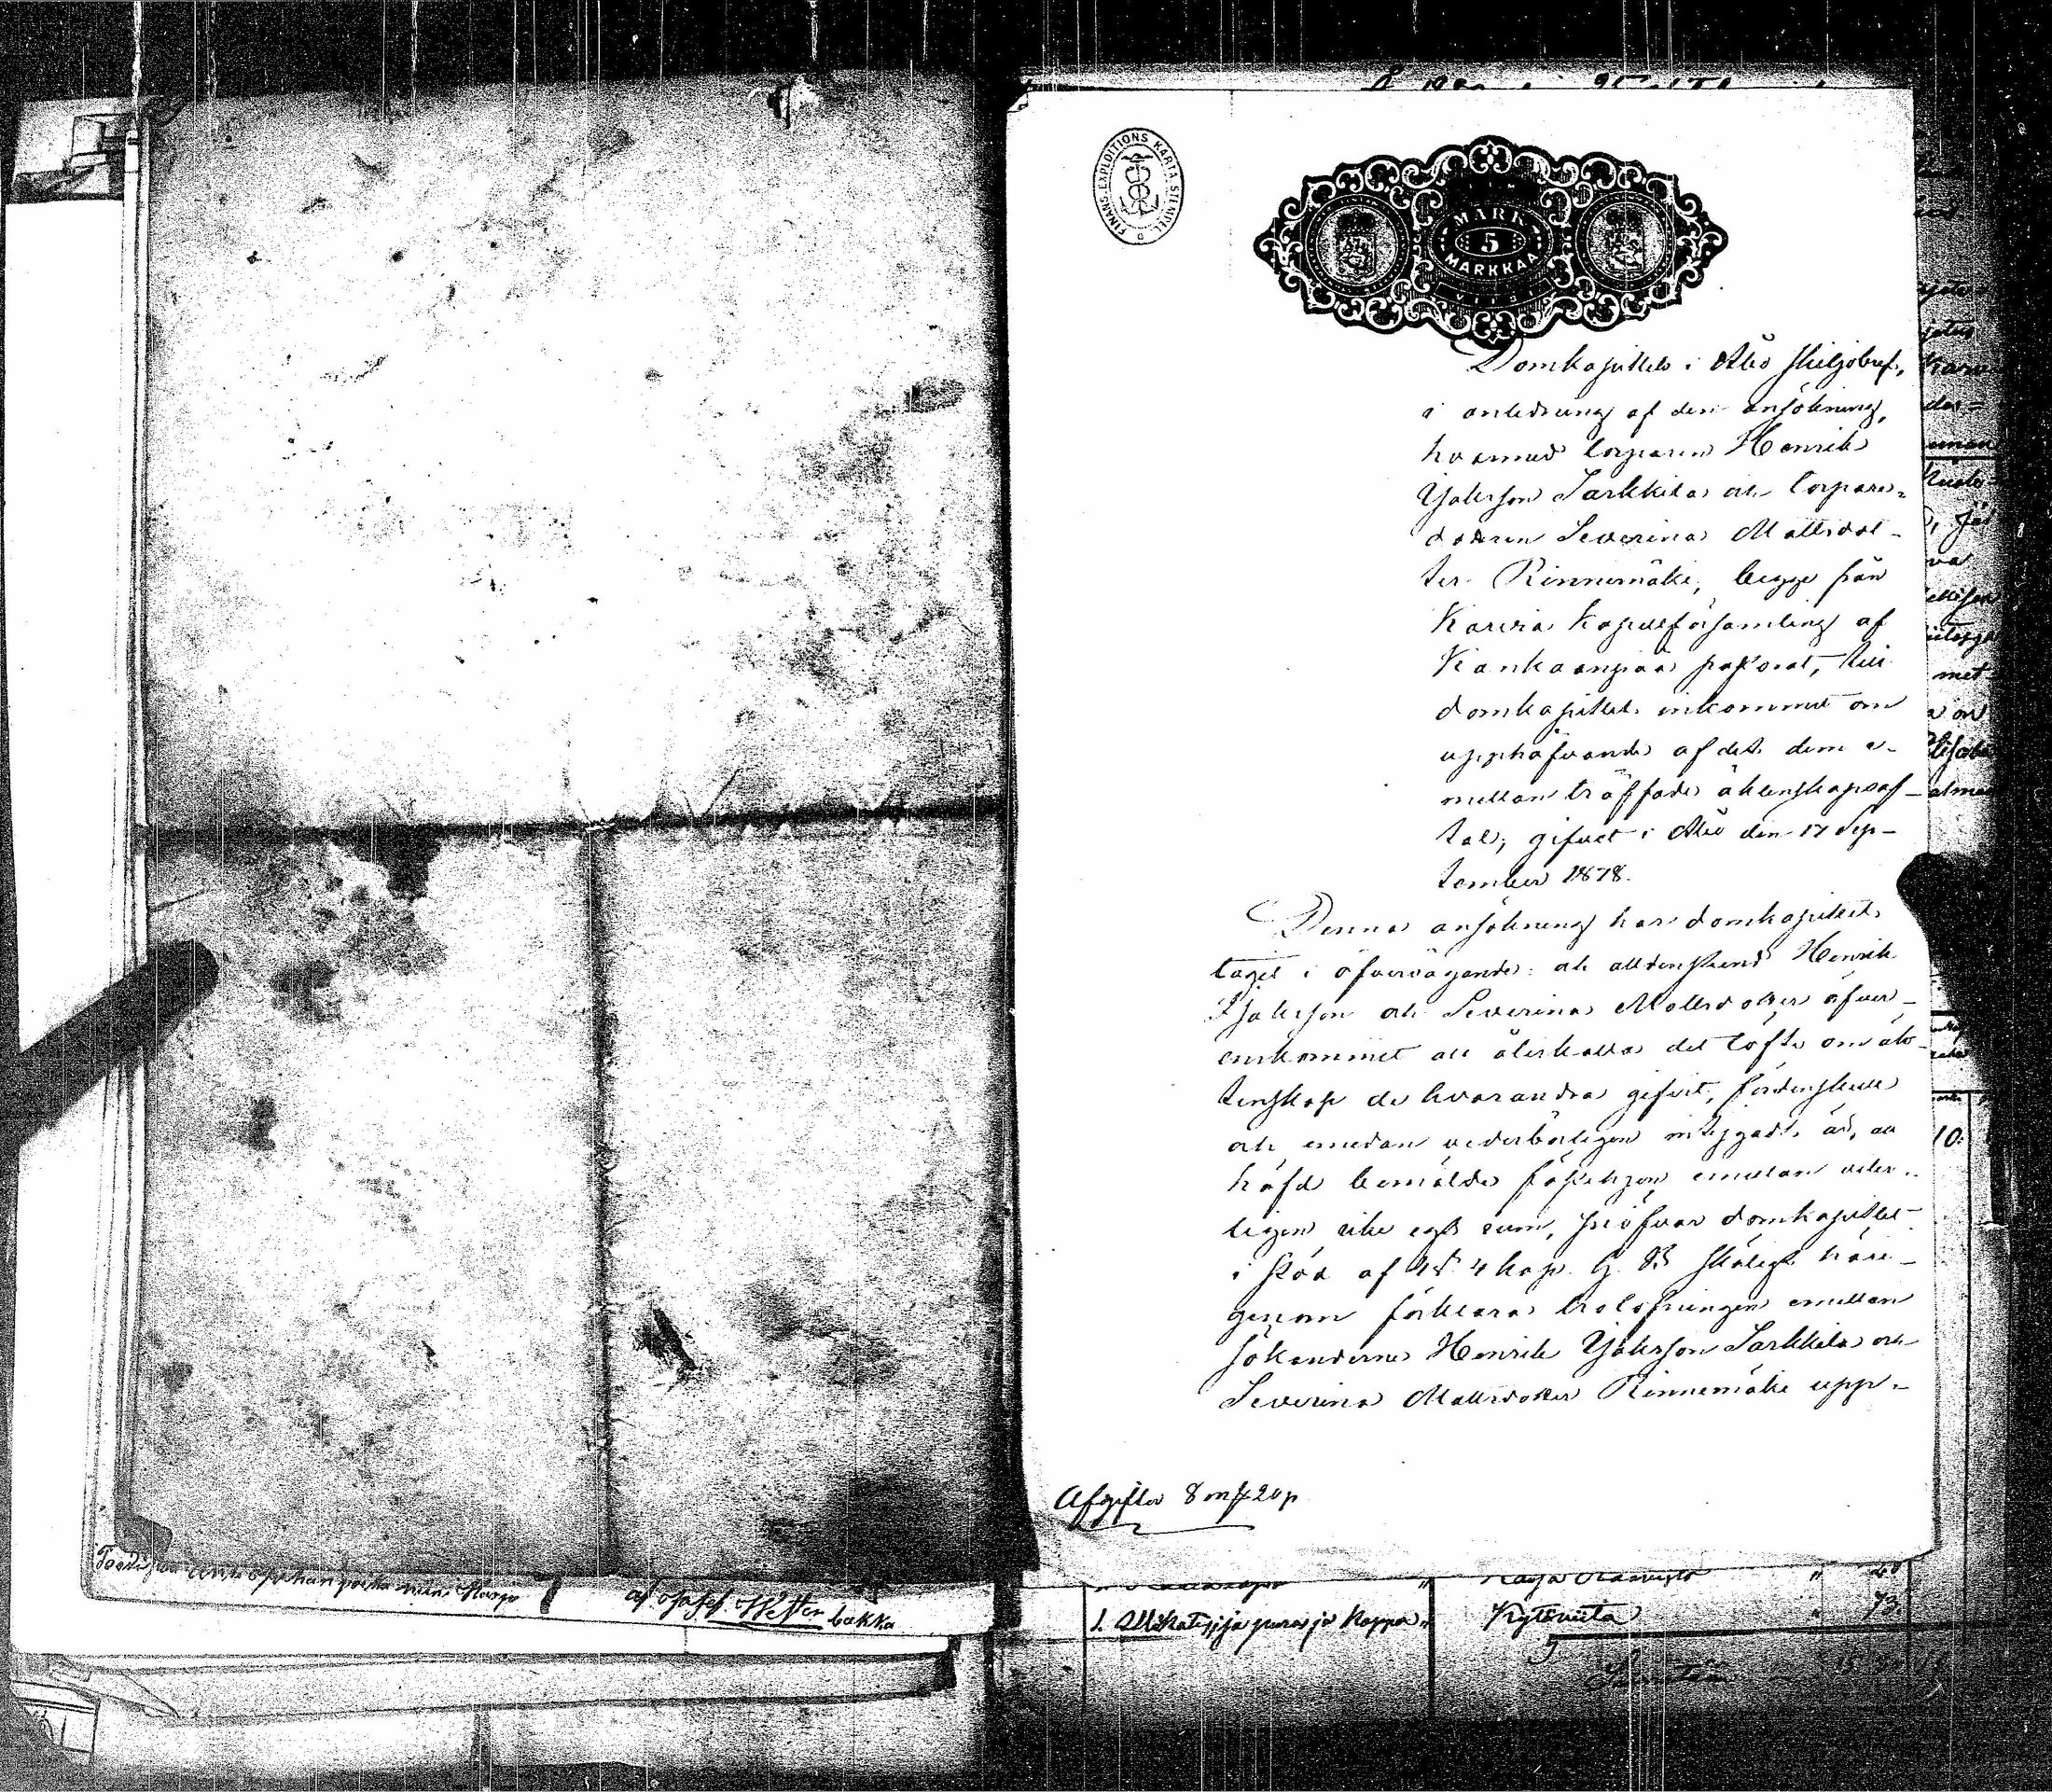 FINANS-EXPEDITIONS KARTA STEMPEL
MARK
5
MARKKAA
Domkapitlets i Åbo skiljobref,
i anledning af den ansökning,
hvarmed torparen Henrik
Isaksson Sarkkila och torpare-
dottren Severina Mattsdot-
ter Rinnemäki, begge från
Karvia kapellförsamling af
Kankaanpää pastorat, till
domkapitlet inkommit om
upphäfvande af det dem e-
mellan träffade äktenskapsaf-
tal; gifvet i Åbo den 17 Sep-
tember 1878.
Denna ansökning har domkapitlet
tagit i öfvervägande: och alldenstund Henrik
Isaksson och Severina Mattsdotter öfver-
enskommit att återkalla det löfte om äk-
tenskap de hvarandra gifvit, fördenskull
och emedan vederbörligen intygadt är, att
häfd bemälde fästehjon emellan veter-
ligen icke egt rum, pröfvar domkapitlet
i stöd af 1 § 4 kap. G. B. skäligt häri-
genom förklara trolofningen emellan
sökanderne Henrik Isaksson Sarkkila och
Severina Mattsdotter Rinnemäki upp-
Afgifter 8 mk 20 p
af Josef Wester bakka
ja Kappa
Kytöviita " 73.